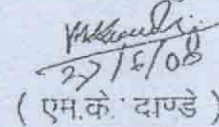 27/6/08
( एम.के. दाण्डे )